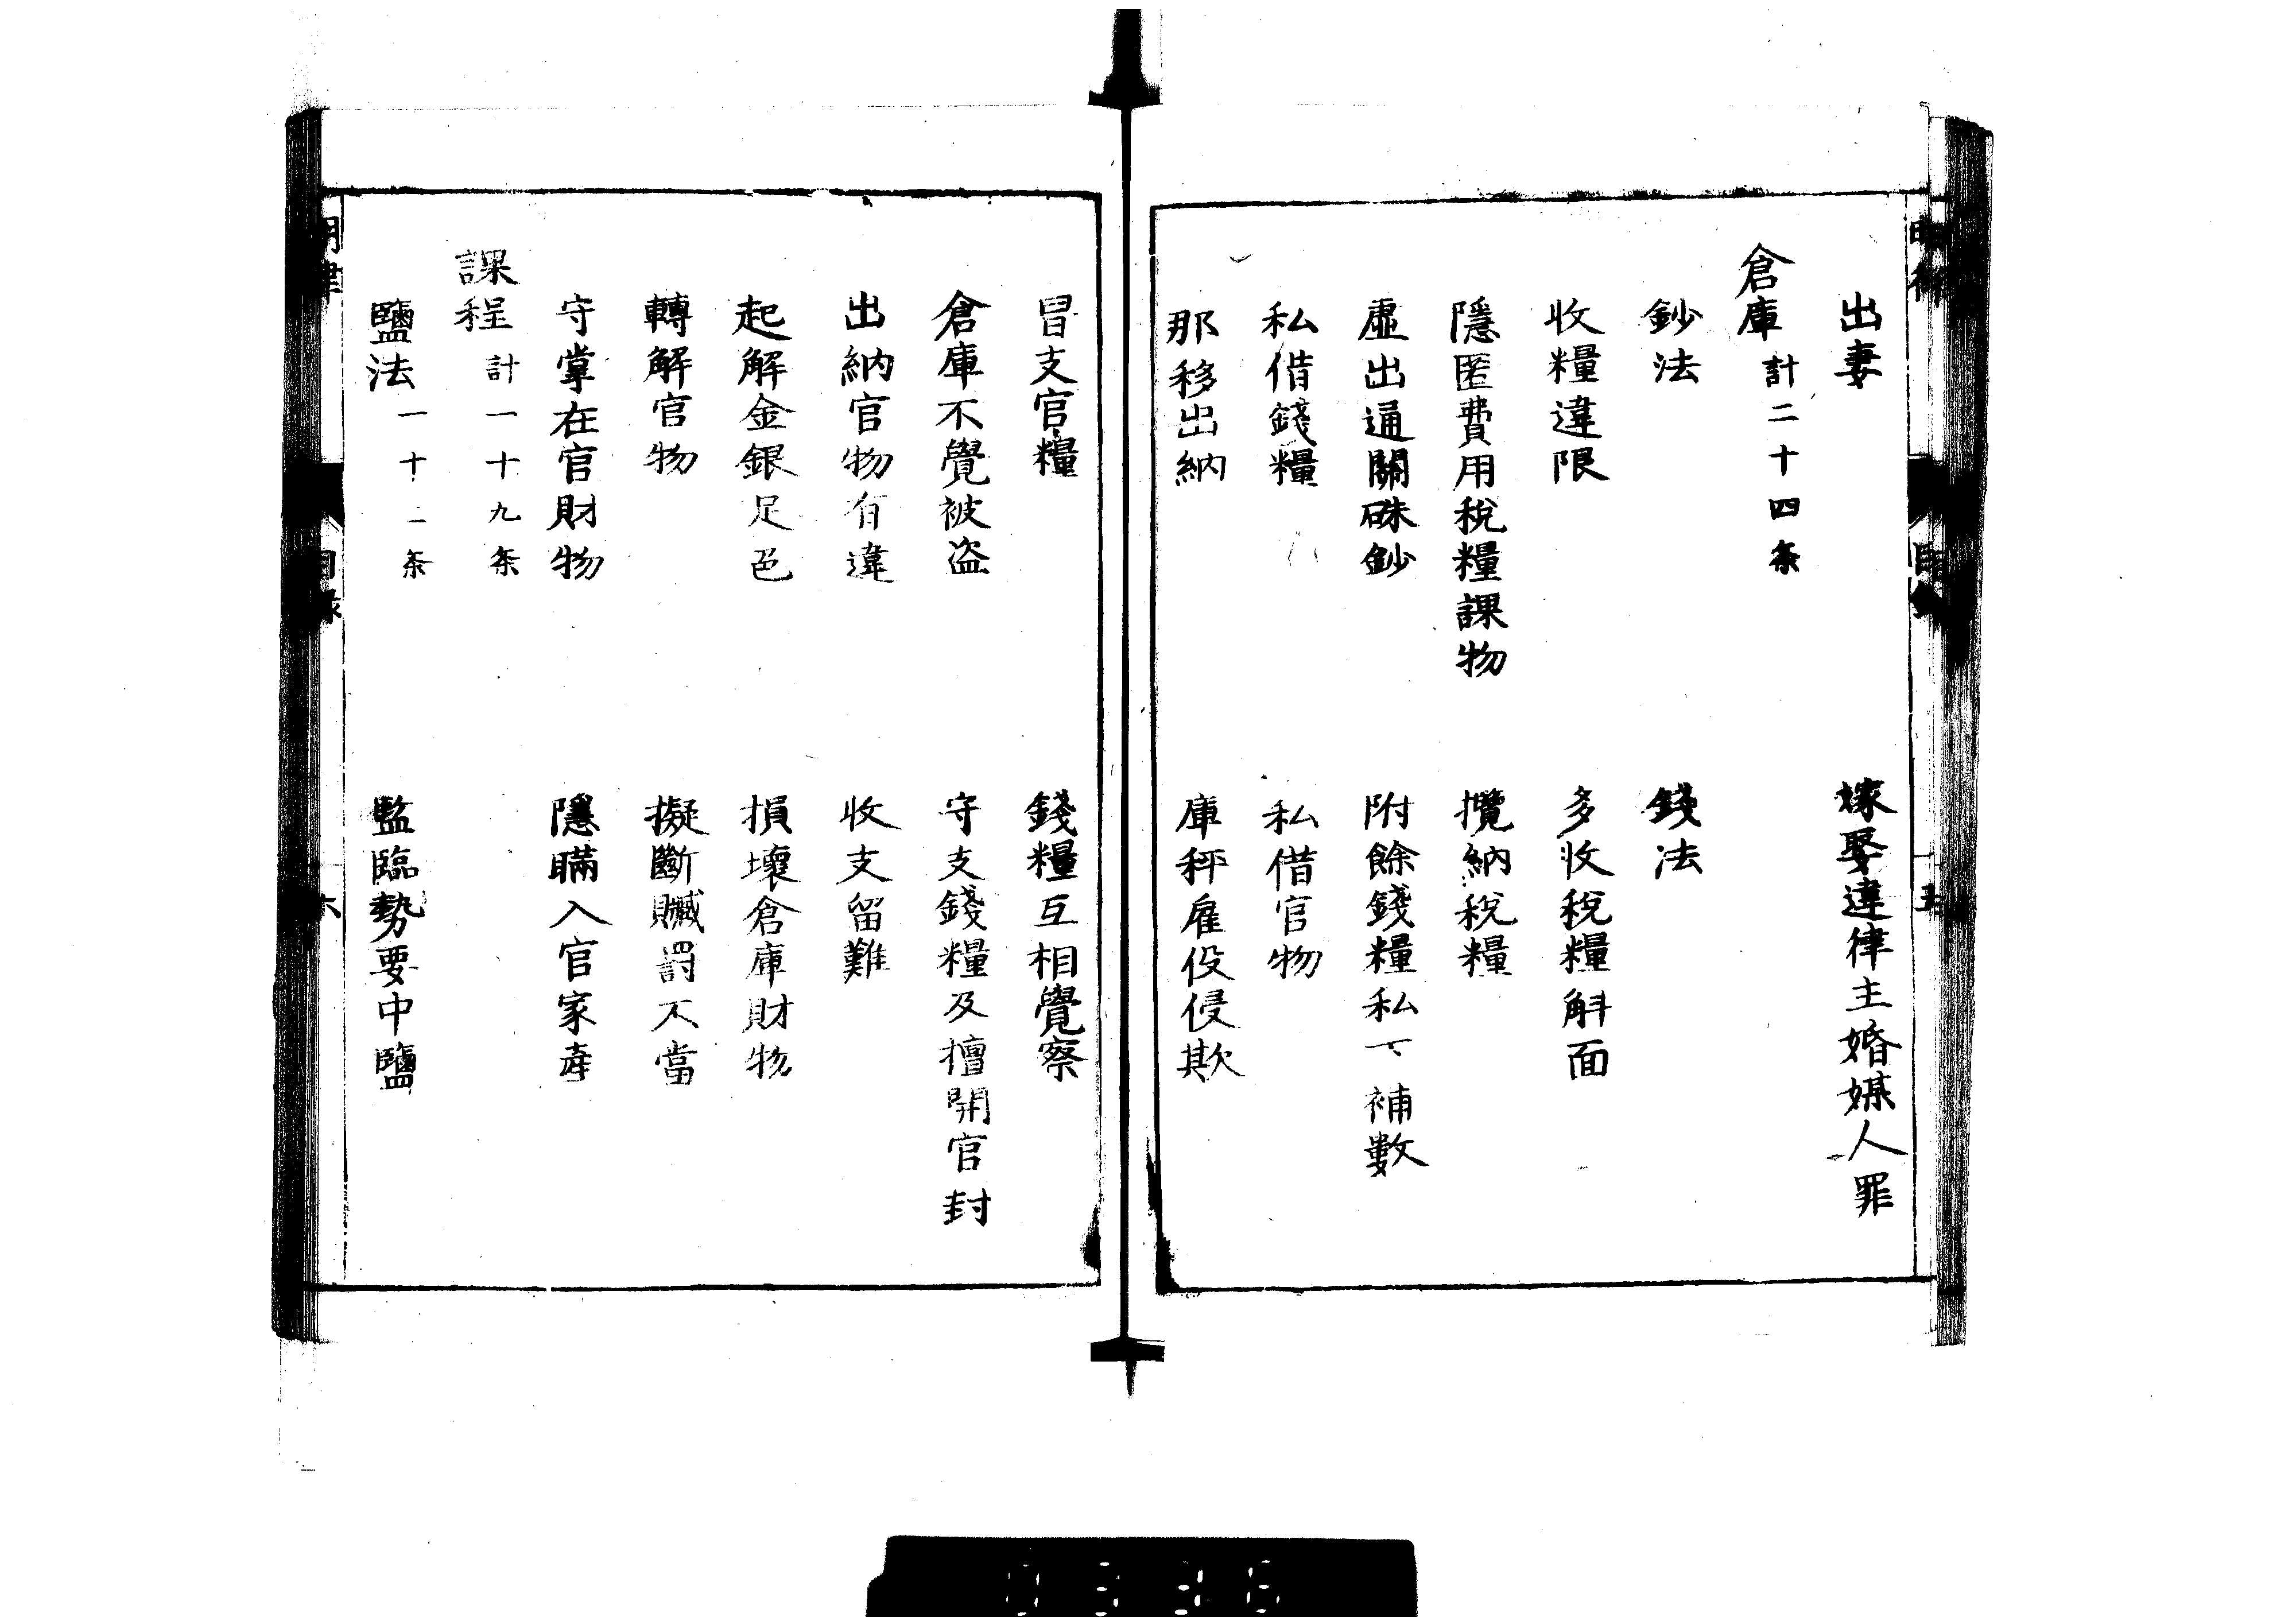 出妻　嫁娶違律主婚媒人罪
倉庫 計二十四条
鈔法　錢法
收糧違限　多收稅糧斛面
隱匿費用稅糧課物　攬納稅糧
虛出通關硃鈔　附餘錢糧私下補數
私借錢糧　私借官物
那移出納　庫秤雇役侵欺
冒支官糧　錢糧互相覺察
倉庫不覺被盜　守支錢糧及擅開官封
出納官物有違　收支留難
起解金銀足色　損壞倉庫財物
轉解官物　擬斷贓罰不當
守掌在官財物　隱瞞入官家產
課程 計一十九条
鹽法 一十二条　監臨勢要中鹽
明律 目錄 六